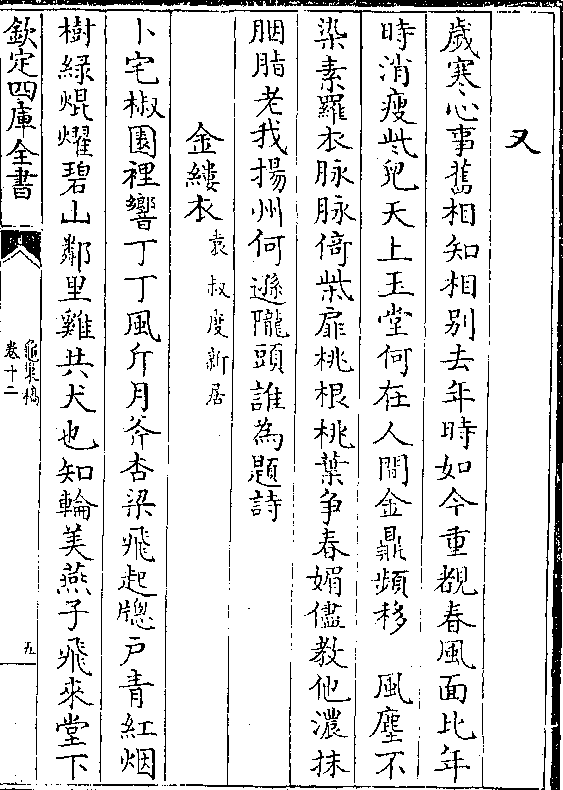 又
歲寒心事舊相知相別去年時如今重覩春風面比年
時消瘦些兒天上玉堂何在人間金鼎頻移　風塵不
染素羅衣脉脉倚柴扉桃根桃葉爭春媚儘教他濃抹
胭脂老我揚州何遜隴頭誰為題詩
金縷衣袁叔度新居
卜宅椒園裡響丁丁風斤月斧杏梁飛起牕戸青紅烟
樹緑焜燿碧山鄰里雞共犬也知輪美燕子飛來堂下
欽定四庫全書
龜巢稿
卷十二
五